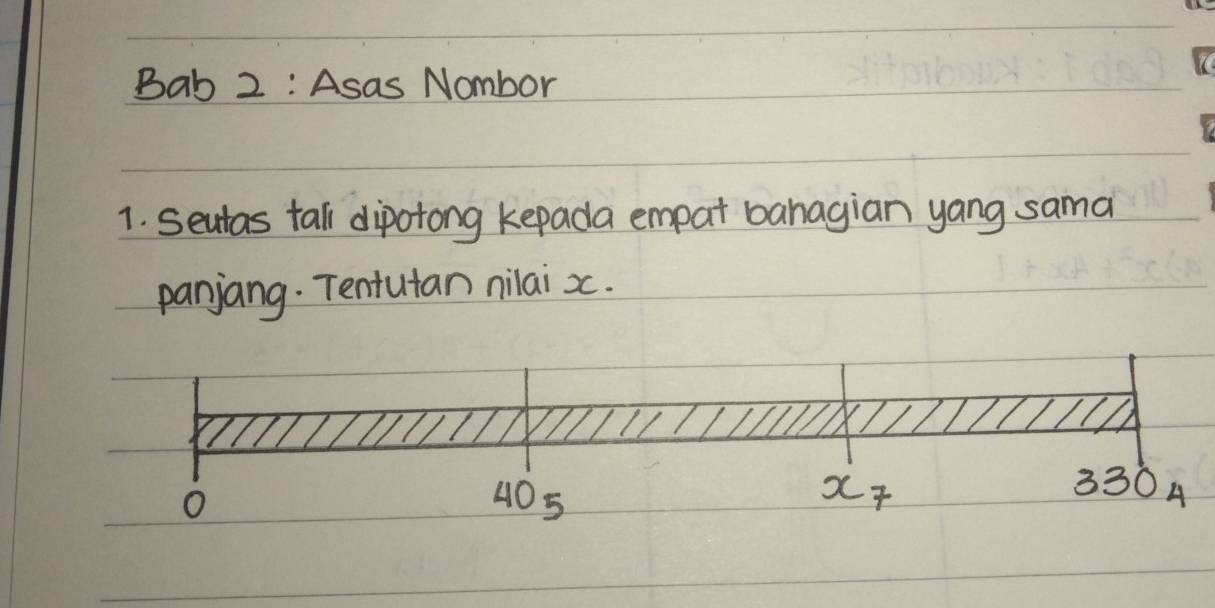 Bab 2 : Asas Nombor
1. Seutas tali dipotong kepada empat bahagian yang sama
panjang. Tentutan nilai x.
0 40₅ x₇ 330₄